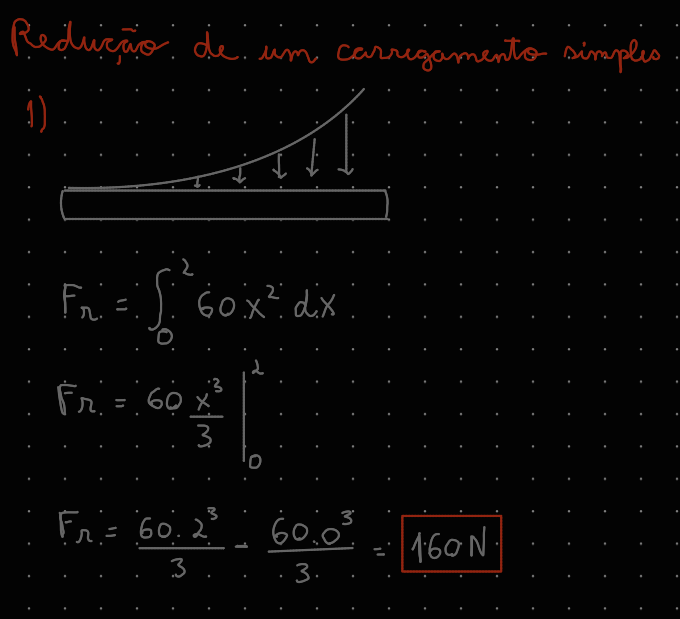 Redução de um carregamento simples
1)
Fr = ∫₀² 60x² dx
Fr = 60 x³/3 |₀²
Fr = 60.2³/3 - 60.0³/3 = 160N